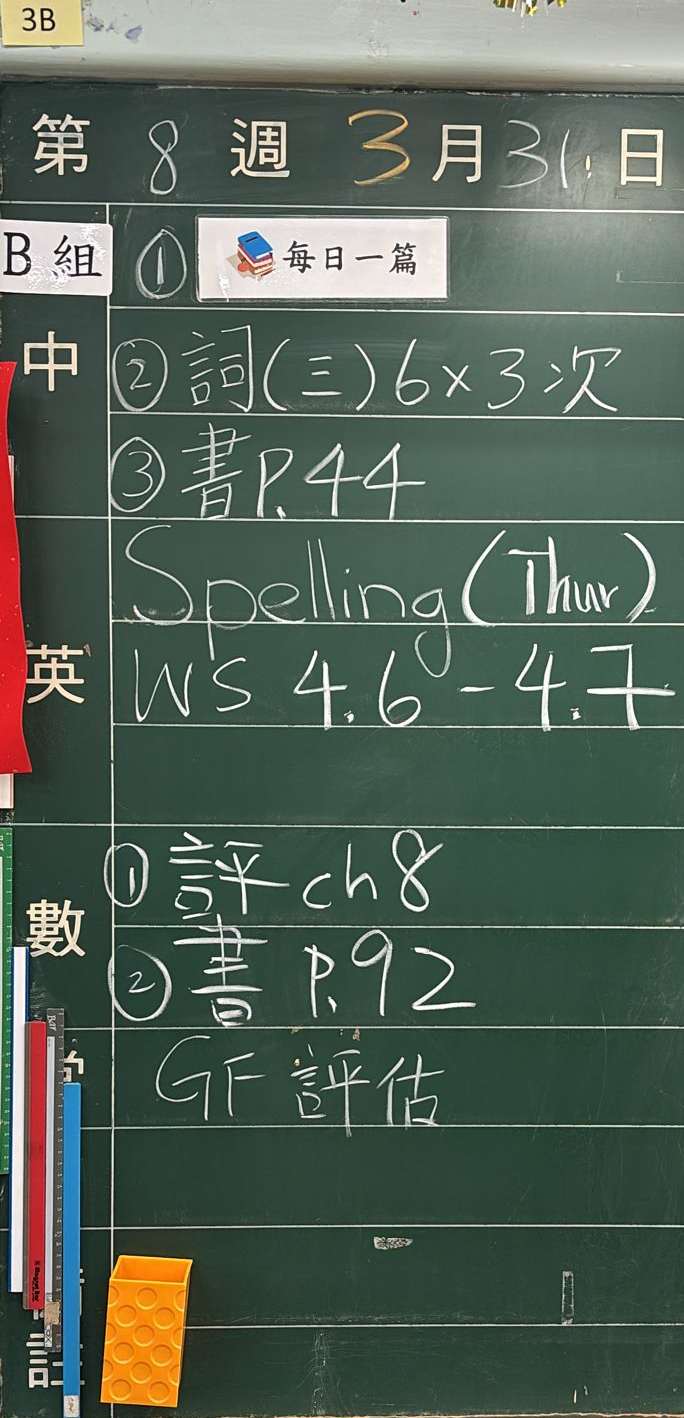 3B
第 8 週 3 月 31 日
B 組 ① 每日一篇
中 ② 詞(三)6×3次
③ 書P.44
Spelling (Thur)
英 WS 4.6 - 4.7
① 評 ch 8
數 ② 書 P.92
GF 評估
註